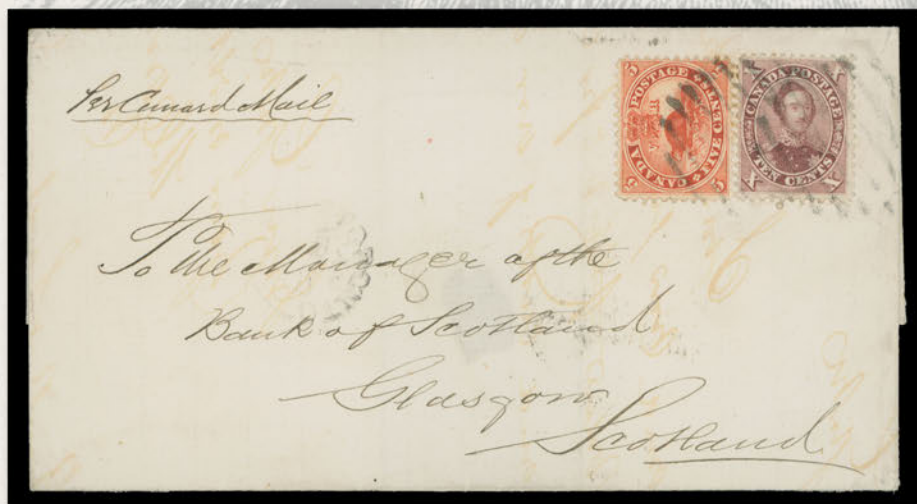 Per Cunard Mail
CANADA POSTAGE
FIVE CENTS
5 5 5 5
CANADA POSTAGE
TEN CENTS
X X X X
To the Manager of the
Bank of Scotland
Glasgow
Scotland